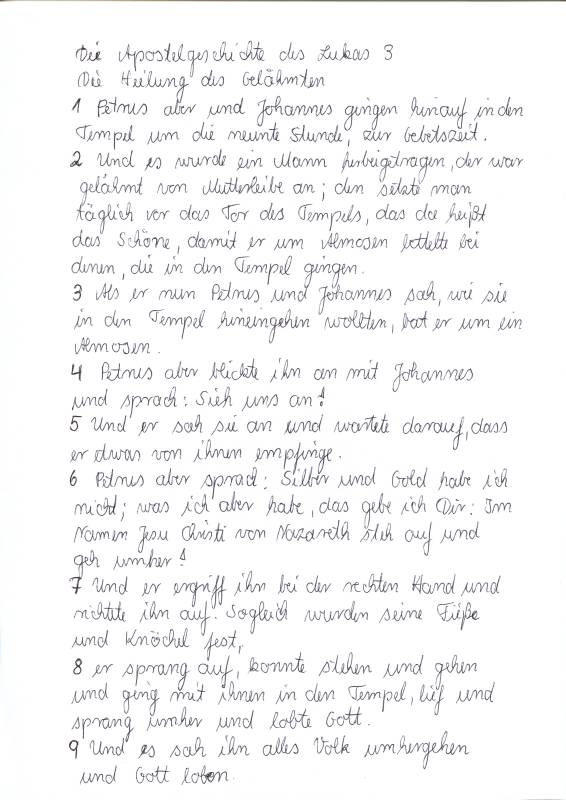 Die Apostelgeschichte des Lukas 3
Die Heilung des Gelähmten
1 Petrus aber und Johannes gingen hinauf in den
Tempel um die neunte Stunde, zur Gebetszeit.
2 Und es wurde ein Mann herbeigetragen, der war
gelähmt von Mutterleibe an; den setzte man
täglich vor das Tor des Tempels, das da heißt
das Schöne, damit er um Almosen bettelte bei
denen, die in den Tempel gingen.
3 Als er nun Petrus und Johannes sah, wie sie
in den Tempel hineingehen wollten, bat er um ein
Almosen.
4 Petrus aber blickte ihn an mit Johannes
und sprach: Sieh uns an!
5 Und er sah sie an und wartete darauf, dass
er etwas von ihnen empfinge.
6 Petrus aber sprach: Silber und Gold habe ich
nicht; was ich aber habe, das gebe ich Dir: Im
Namen Jesu Christi von Nazareth steh auf und
geh umher!
7 Und er ergriff ihn bei der rechten Hand und
richtete ihn auf. Sogleich wurden seine Füße
und Knöchel fest,
8 er sprang auf, konnte stehen und gehen
und ging mit ihnen in den Tempel, lief und
sprang umher und lobte Gott.
9 Und es sah ihn alles Volk umhergehen
und Gott loben.